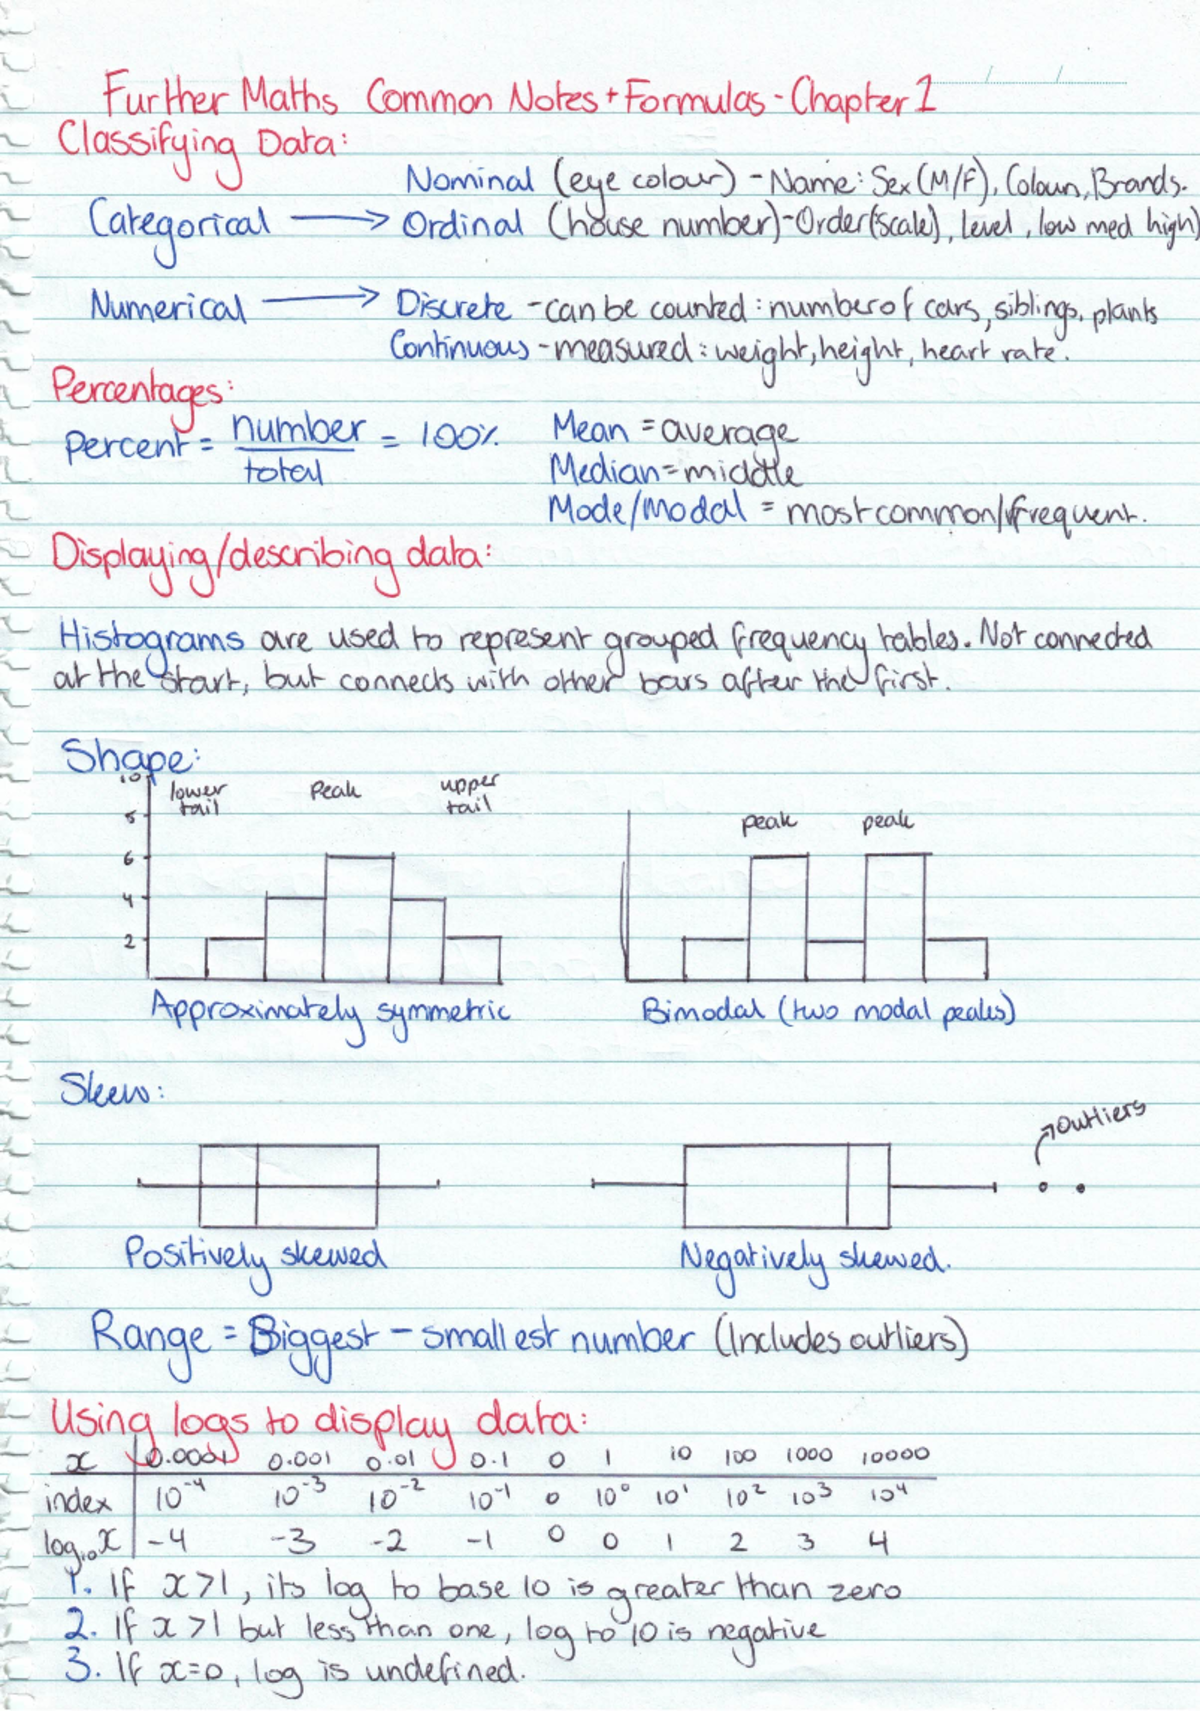 Further Maths Common Notes + Formulas - Chapter 1
Classifying Data:
Nominal (eye colour) - Name: Sex (M/F), Colour, Brands.
Categorical → Ordinal (house number) - Order (scale), level, low med high)
Numerical → Discrete - can be counted: number of cars, siblings, plants
Continuous - measured: weight, height, heart rate.
Percentages:
Percent = number/total = 100% Mean = average
Median = middle
Mode/modal = most common/frequent.
Displaying/describing data:
Histograms are used to represent grouped frequency tables. Not connected
at the start, but connects with other bars after the first.
Shape:
10 lower tail Peak upper tail
8 peak peak
6
4
2
Approximately symmetric Bimodal (two modal peaks)
Skew:
outliers
Positively skewed Negatively skewed.
Range = Biggest - smallest number (Includes outliers)
Using logs to display data:
x 0.0001 0.001 0.01 0.1 0 1 10 100 1000 10000
index 10⁻⁴ 10⁻³ 10⁻² 10⁻¹ 0 10⁰ 10¹ 10² 10³ 10⁴
log₁₀x -4 -3 -2 -1 0 0 1 2 3 4
1. If x>1, its log to base 10 is greater than zero
2. If x>1 but less than one, log to 10 is negative
3. If x=0, log is undefined.